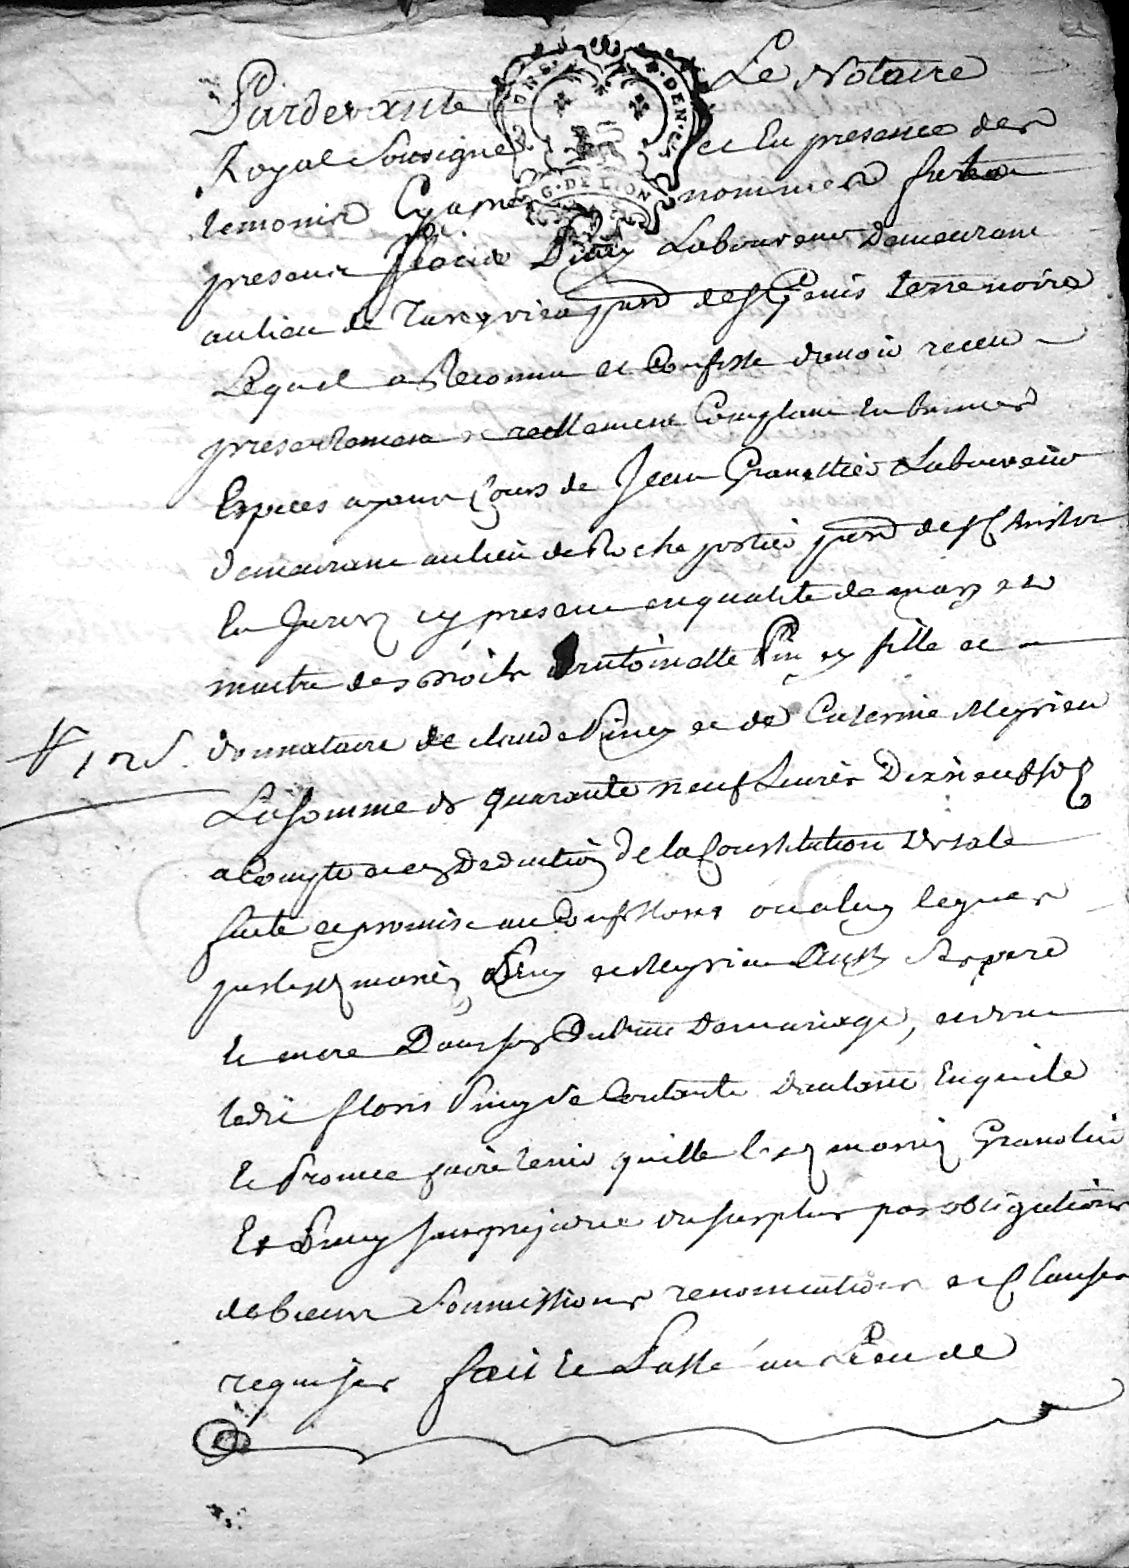 Pardevant Le Notaire
Royal Sousigné et En presence des
temonis Cy apres nommes fut
present Piney Laboureur Demeurant
au lieu de parr de St Genis terre noire
Lequel a Reconnu et Confesse davoir receu
presentement et reellement Comptant En bonnes
Espèces ayant Cours de Jean Laboureur
demeurant au lieu de Roche parr de St Christo
En Jarez cy present en qualité de mary et
maitre des droits dantoinette Piney fille et
donnataire de claude Piney et de Caterine Meyrieu
La somme de quarante neuf Livres Dixneuf sols
a Compte et en Deduction de la Constitution
faite et promise au Confessant
par lesd mariés Piney et Meyrieu Ses pere
Et mere Dans son de mariage, et dont
ledit Piney Se Contente Dautant En quitte
Et Promet faire tenir quitte lesd mariés
Et Piney sans prejudice du surplus par obligations
de biens Soumissions renonciations et Clauses
requises fait et Passé au Lieu de
G. DE LION